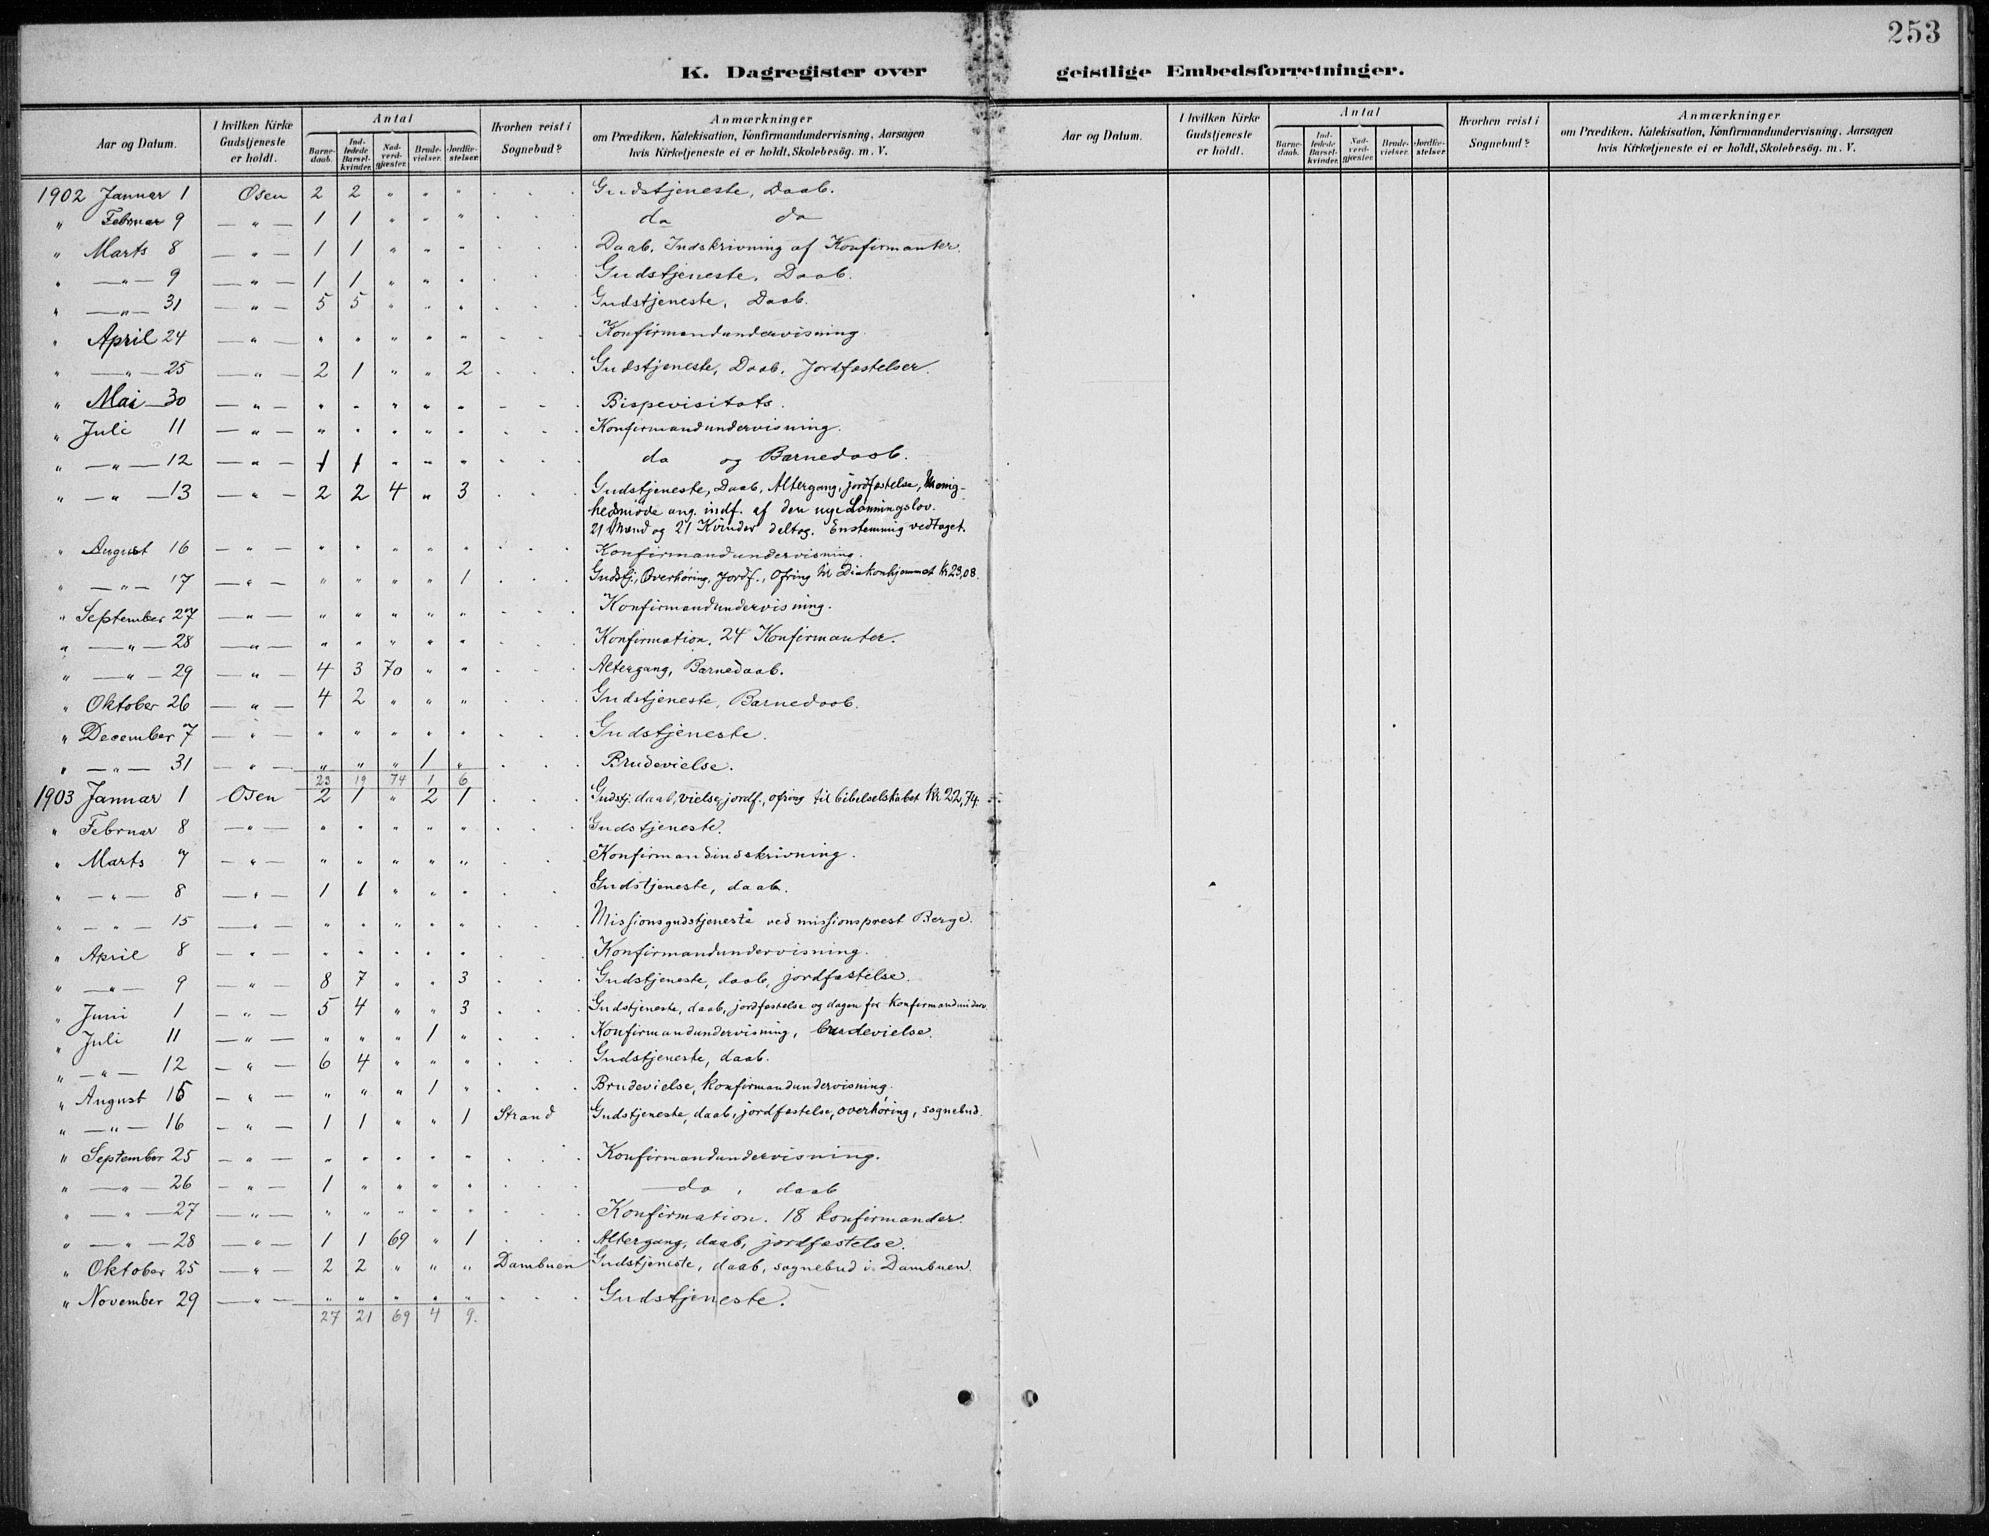 253
K. Dagregister over geistlige Embedsforretninger.
Aar og Datum. I hvilken Kirke Gudstjeneste er holdt. Antal Barnedaab. Indledede Barselkvinder. Nadverdgjester. Brudevielser. Jordfæstelser. Hvorhen reist i Sognebud? Anmærkninger om Prædiken, Katekisation, Konfirmandundervisning, Aarsagen hvis Kirketjeneste ei er holdt, Skolebesøg. m. V.
Aar og Datum. I hvilken Kirke Gudstjeneste er holdt. Antal Barnedaab. Indledede Barselkvinder. Nadverdgjæster. Brudevielser. Jordfæstelser. Hvorhen reist i Sognebud? Anmærkninger om Prædiken, Katekisation, Konfirmandundervisning, Aarsagen hvis Kirketjeneste ei er holdt, Skolebesøg. m. V.
1902 Januar 1 Osen 2 2 " " " Gudstjeneste, Daab.
" Februar 9 — " — 1 1 " " " do do
" Marts 8 — " — 1 1 " " " Daab. Indskrivning af Konfirmanter.
" — " — 9 — " — 1 1 " " " Gudstjeneste, Daab.
" — " — 31 — " — 5 5 " " " Gudstjeneste, Daab.
" April 24 — " — " " " " " Konfirmandundervisning.
" — " — 25 — " — 2 1 " " 2 Gudstjeneste, Daab, Jordfæstelser.
" Mai 30 — " — " " " " " Bispevisitats.
" Juli 11 — " — " " " " " Konfirmandundervisning.
" — " — 12 — " — 1 1 " " " do og Barnedaab.
" — " — 13 — " — 2 2 4 " 3 Gudstjeneste, Daab, Altergang, jordfæstelse, Menig-
hedsmöde ang. indf. af den nye Lønningslov.
21 Mænd og 21 Kvinder deltog. Enstemmig vedtaget.
" August 16 — " — " " " " " Konfirmandundervisning.
" — " — 17 — " — " " " " 1 Gudstj., Overhøring, Jordf., Ofring til Diakonhjemmet Kr 23,08.
" September 27 — " — " " " " " Konfirmandundervisning.
" — " — 28 — " — " " " " " Konfirmation. 24 Konfirmanter.
" — " — 29 — " — 4 3 70 " " Altergang, Barnedaab.
" Oktober 26 — " — 4 2 " " " Gudstjeneste, Barnedaab.
" December 7 — " — " " " " " Gudstjeneste.
" — " — 31 — " — " " " 1 " Brudevielse.
23 19 74 1 6
1903 Januar 1 Osen 2 1 " 2 1 Gudstj. daab, vielse, jordf., ofring til bibelselskabet Kr 22,74.
" Februar 8 — " — " " " " " Gudstjeneste.
" Marts 7 — " — " " " " " Konfirmandindskrivning.
" — " — 8 — " — 1 1 " " " Gudstjeneste, daab.
" — " — 15 — " — " " " " " Missionsgudstjeneste ved missionsprest Berge.
" April 8 — " — " " " " " Konfirmandundervisning.
" — " — 9 — " — 8 7 " " 3 Gudstjeneste, daab, jordfæstelse.
" Juni 1 — " — 5 4 " " 3 Gudstjeneste, daab, jordfæstelse og dagen før Konfirmandunderv.
" Juli 11 — " — " " " 1 " Konfirmandundervisning, brudevielse.
" — " — 12 — " — 6 4 " " " Gudstjeneste, daab.
" August 15 — " — " " " 1 " Brudevielse, konfirmandundervisning.
" — " — 16 — " — 1 1 " " 1 Strand Gudstjeneste, daab, jordfæstelse, overhøring, sognebud.
" September 25 — " — " " " " " Konfirmandundervisning.
" — " — 26 — " — 1 " " " " — do , daab
" — " — 27 — " — " " " " " Konfirmation. 18 konfirmander.
" — " — 28 — " — 1 1 69 " 1 Altergang, daab, jordfæstelse.
" Oktober 25 — " — 2 2 " " " Dambuen Gudstjeneste, daab, sognebud i Dambuen.
" November 29 — " — " " " " " Gudstjeneste.
27 21 69 4 9.